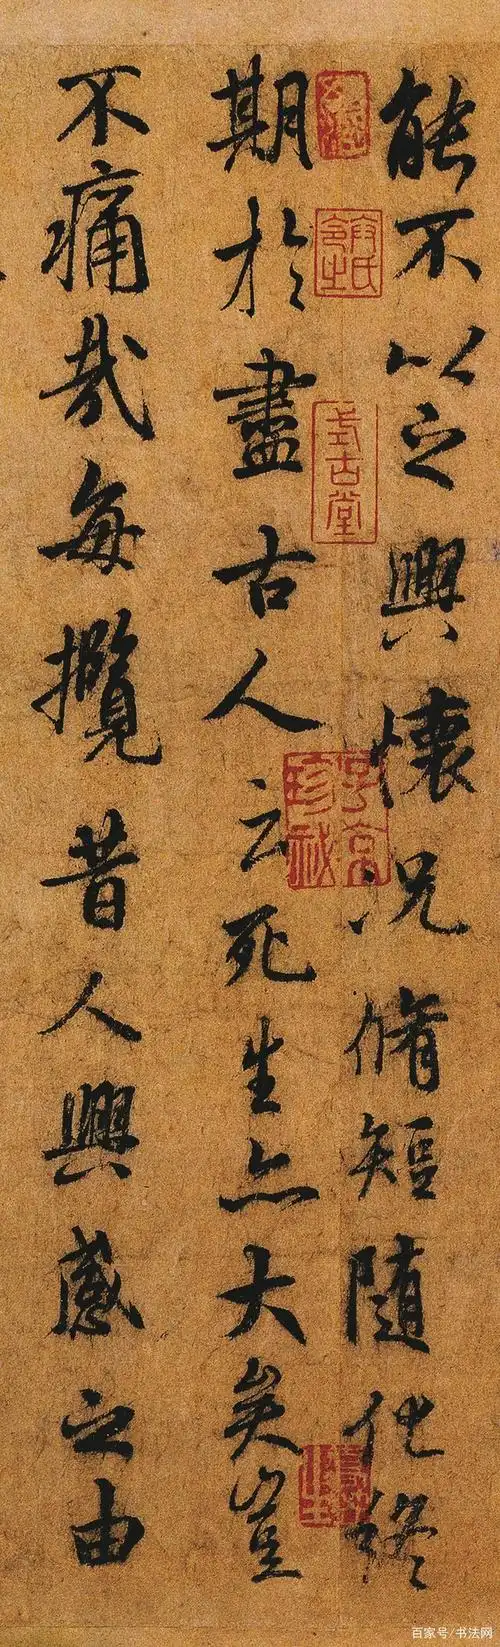 能不以之興懷况脩短随化終
期於盡古人云死生亦大矣豈
不痛哉每攬昔人興感之由
式古堂
子京珍祕
百家号/书法网